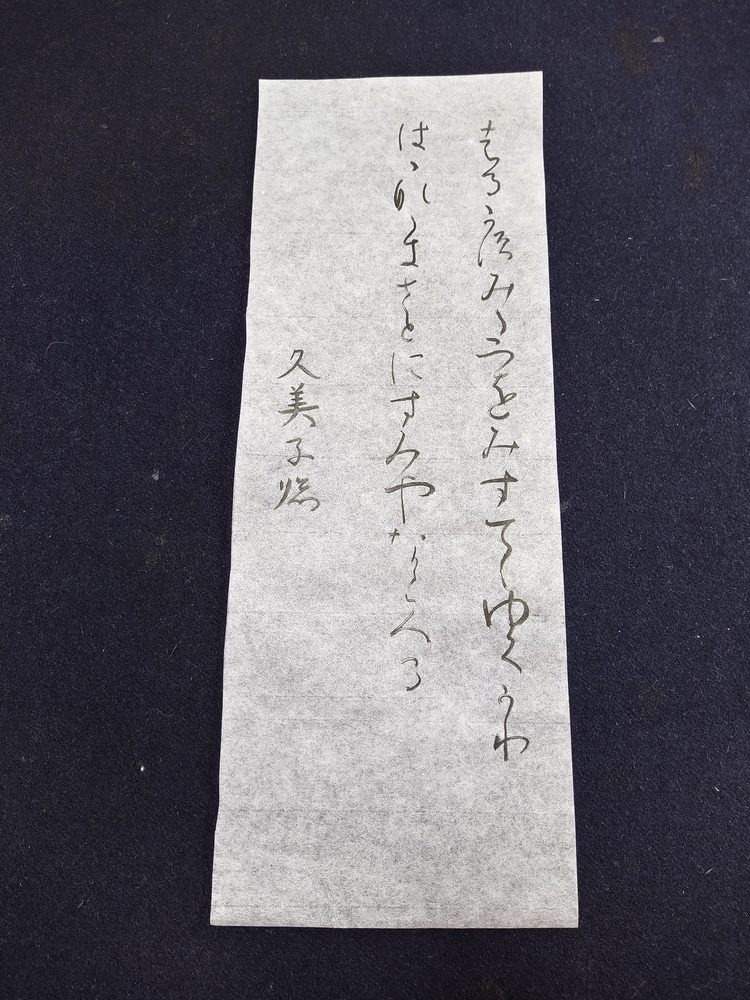 はるかすみたつをみすてゝゆくかり
はゝなゝきさとにすみやならへる
久美子臨